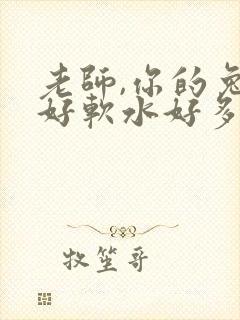 老師,你的兔
好軟水好多
牧笙哥